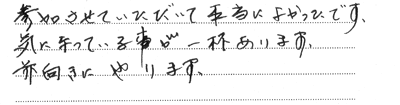 参加させていただいて本当によかったです、
気になっている事が一杯あります、
前向きにやります、